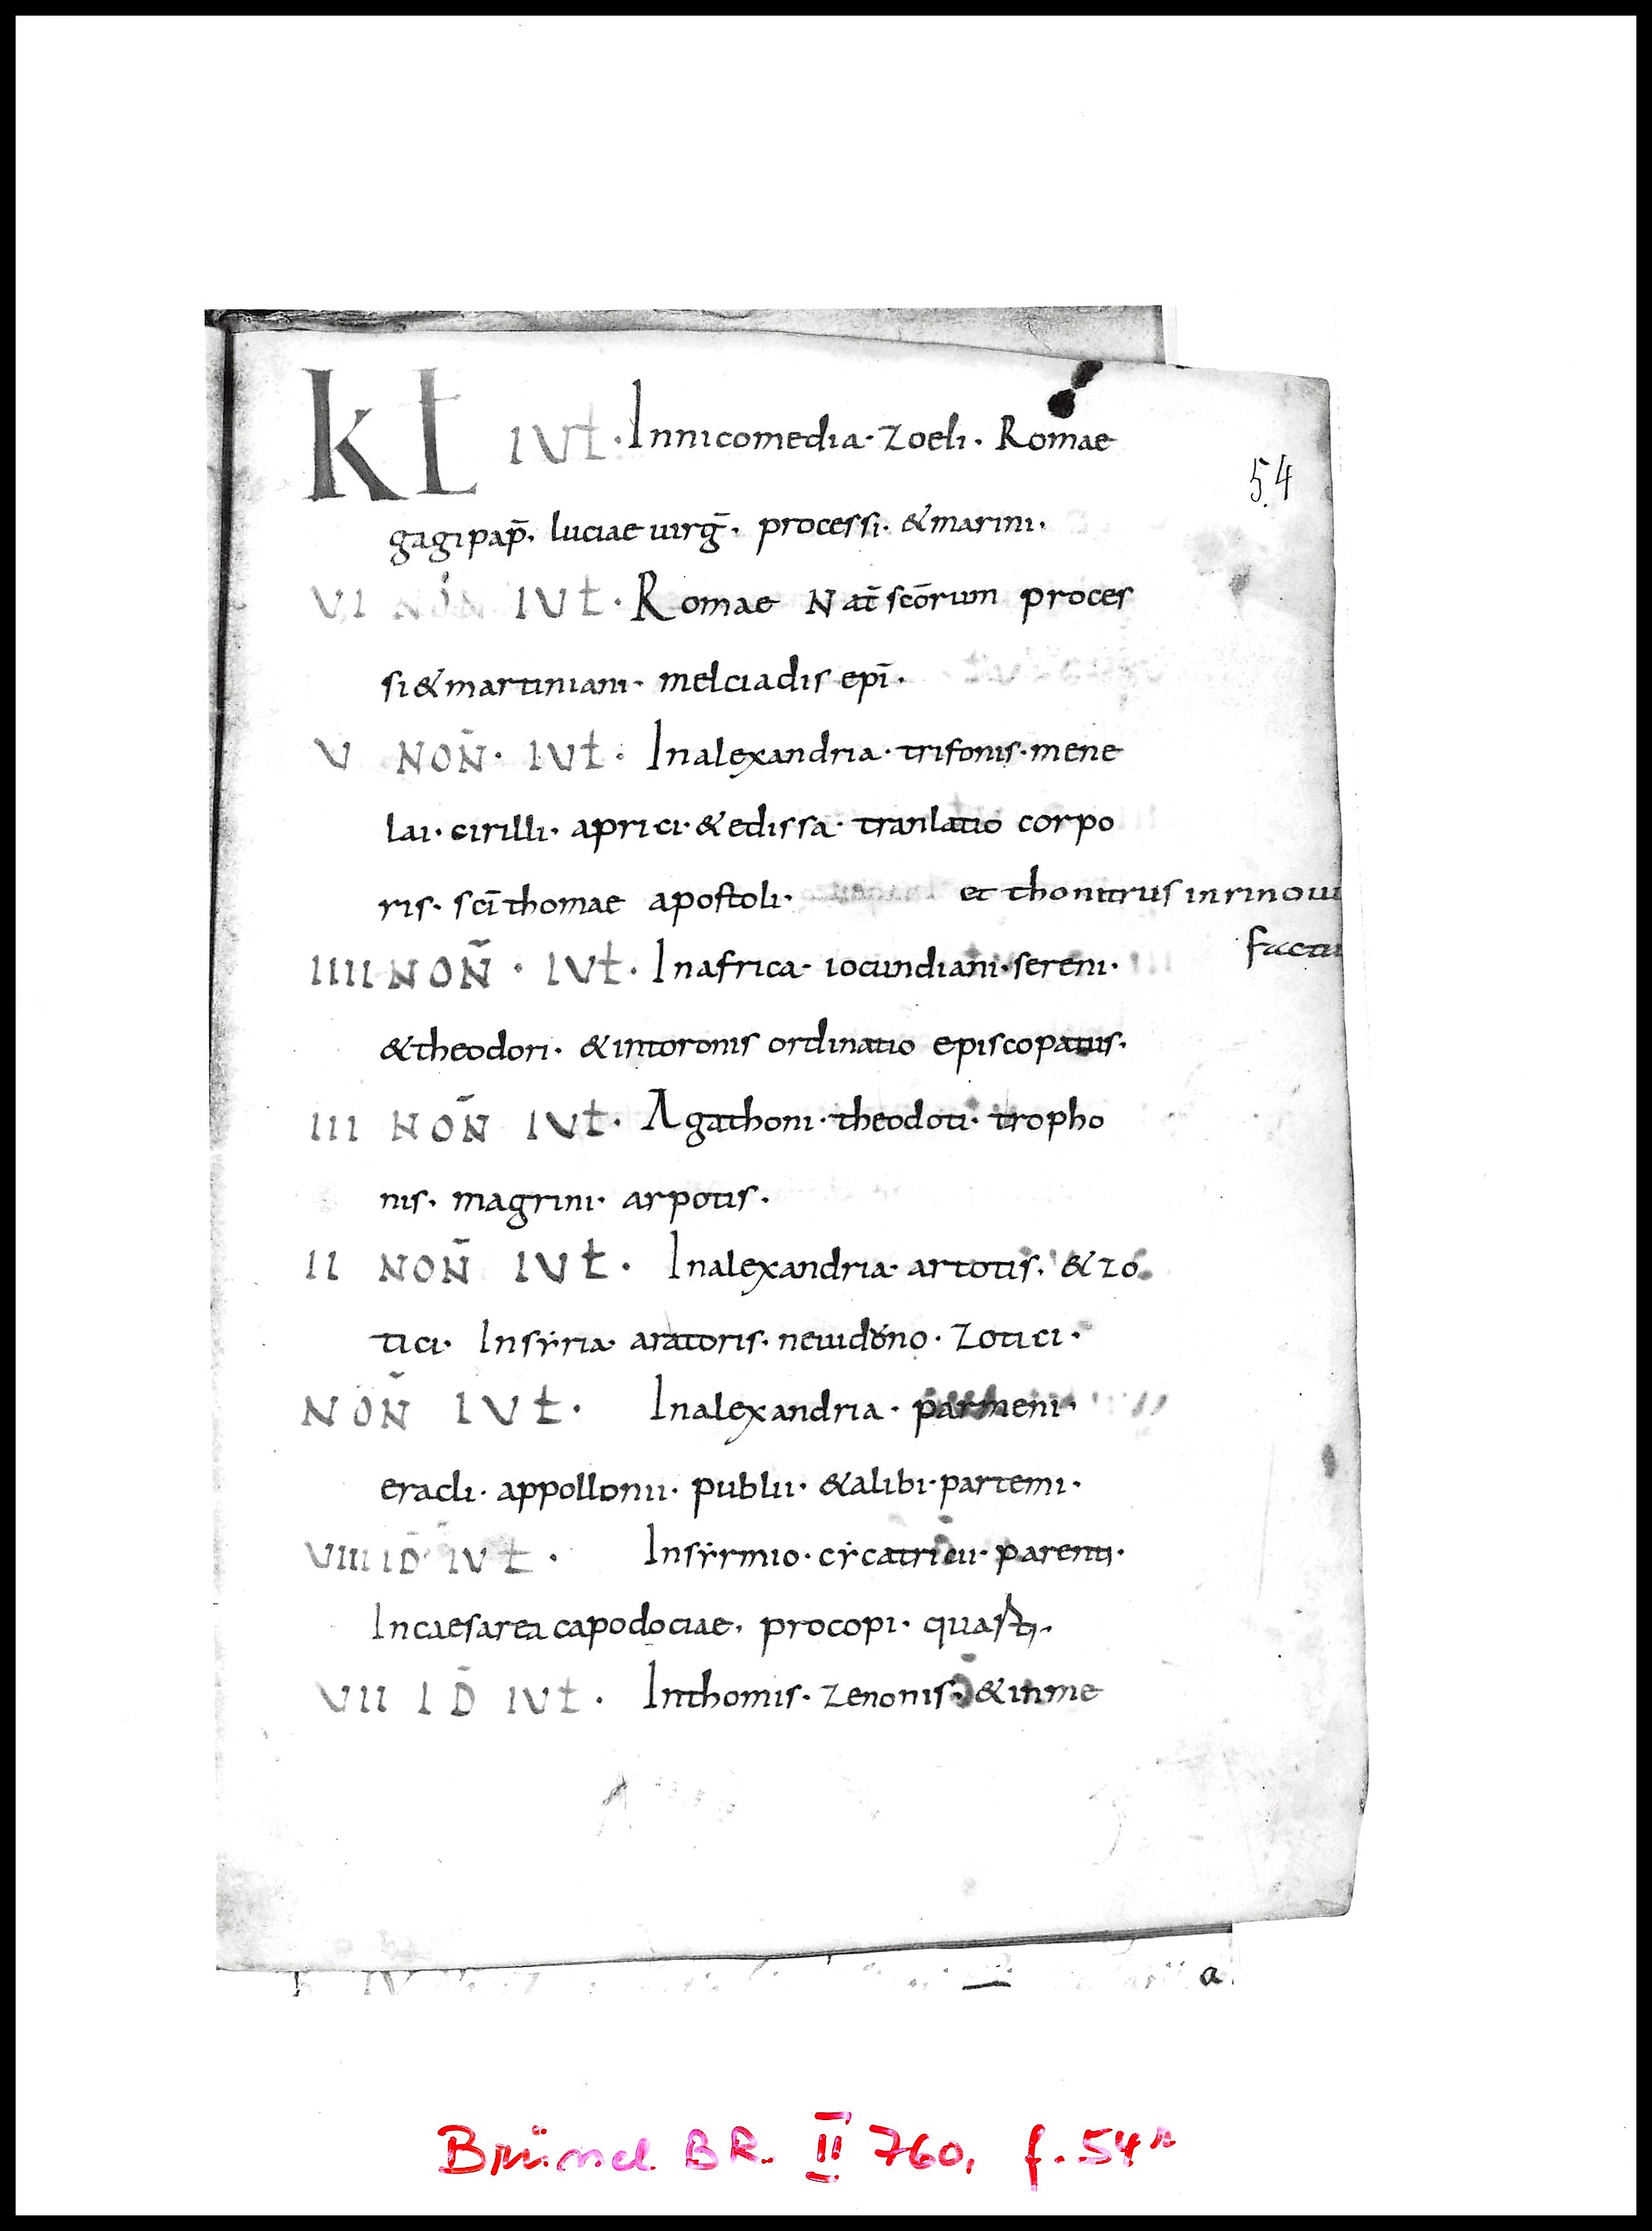 Kƚ IUƚ· Innicomedia· zoeli· Romae
54
gagi pap̄. luciae uirḡ. processi· &marini.
VI NON̄ IUƚ· Romae Nat̄ sc̄orum proces
si&martiniani· melciadis epī·
V NON̄· IUƚ· Inalexandria· trifonis· mene
lai· cirilli· aprici· &edissa· tranlatio corpo
ris· sc̄i thomae apostoli· et thonitrus in rinoui
factu
IIII NON̄· IUƚ· Inafrica· iocundiani· sereni·
&theodori· &intoronis ordinatio episcopatus·
III NON̄ IUƚ· Agathoni· theodoti· tropho
nis· magrini· arpotis·
II NON̄ IUƚ· Inalexandria· artotis· &zo
tici· Insẏria· aratoris· zotici·
NON̄ IUƚ· Inalexandria· parmeni·
eracli· appollonii· publii· &alibi· partemi·
VIIII ID̄ IUƚ· Insẏrmio· cẏcatricii· parenti·
Incaesarea capodociae. procopi·
VII ID̄ IUƚ· Inthomis· zenonis· &inme
a
Brüssel BR. II 760, f. 54r